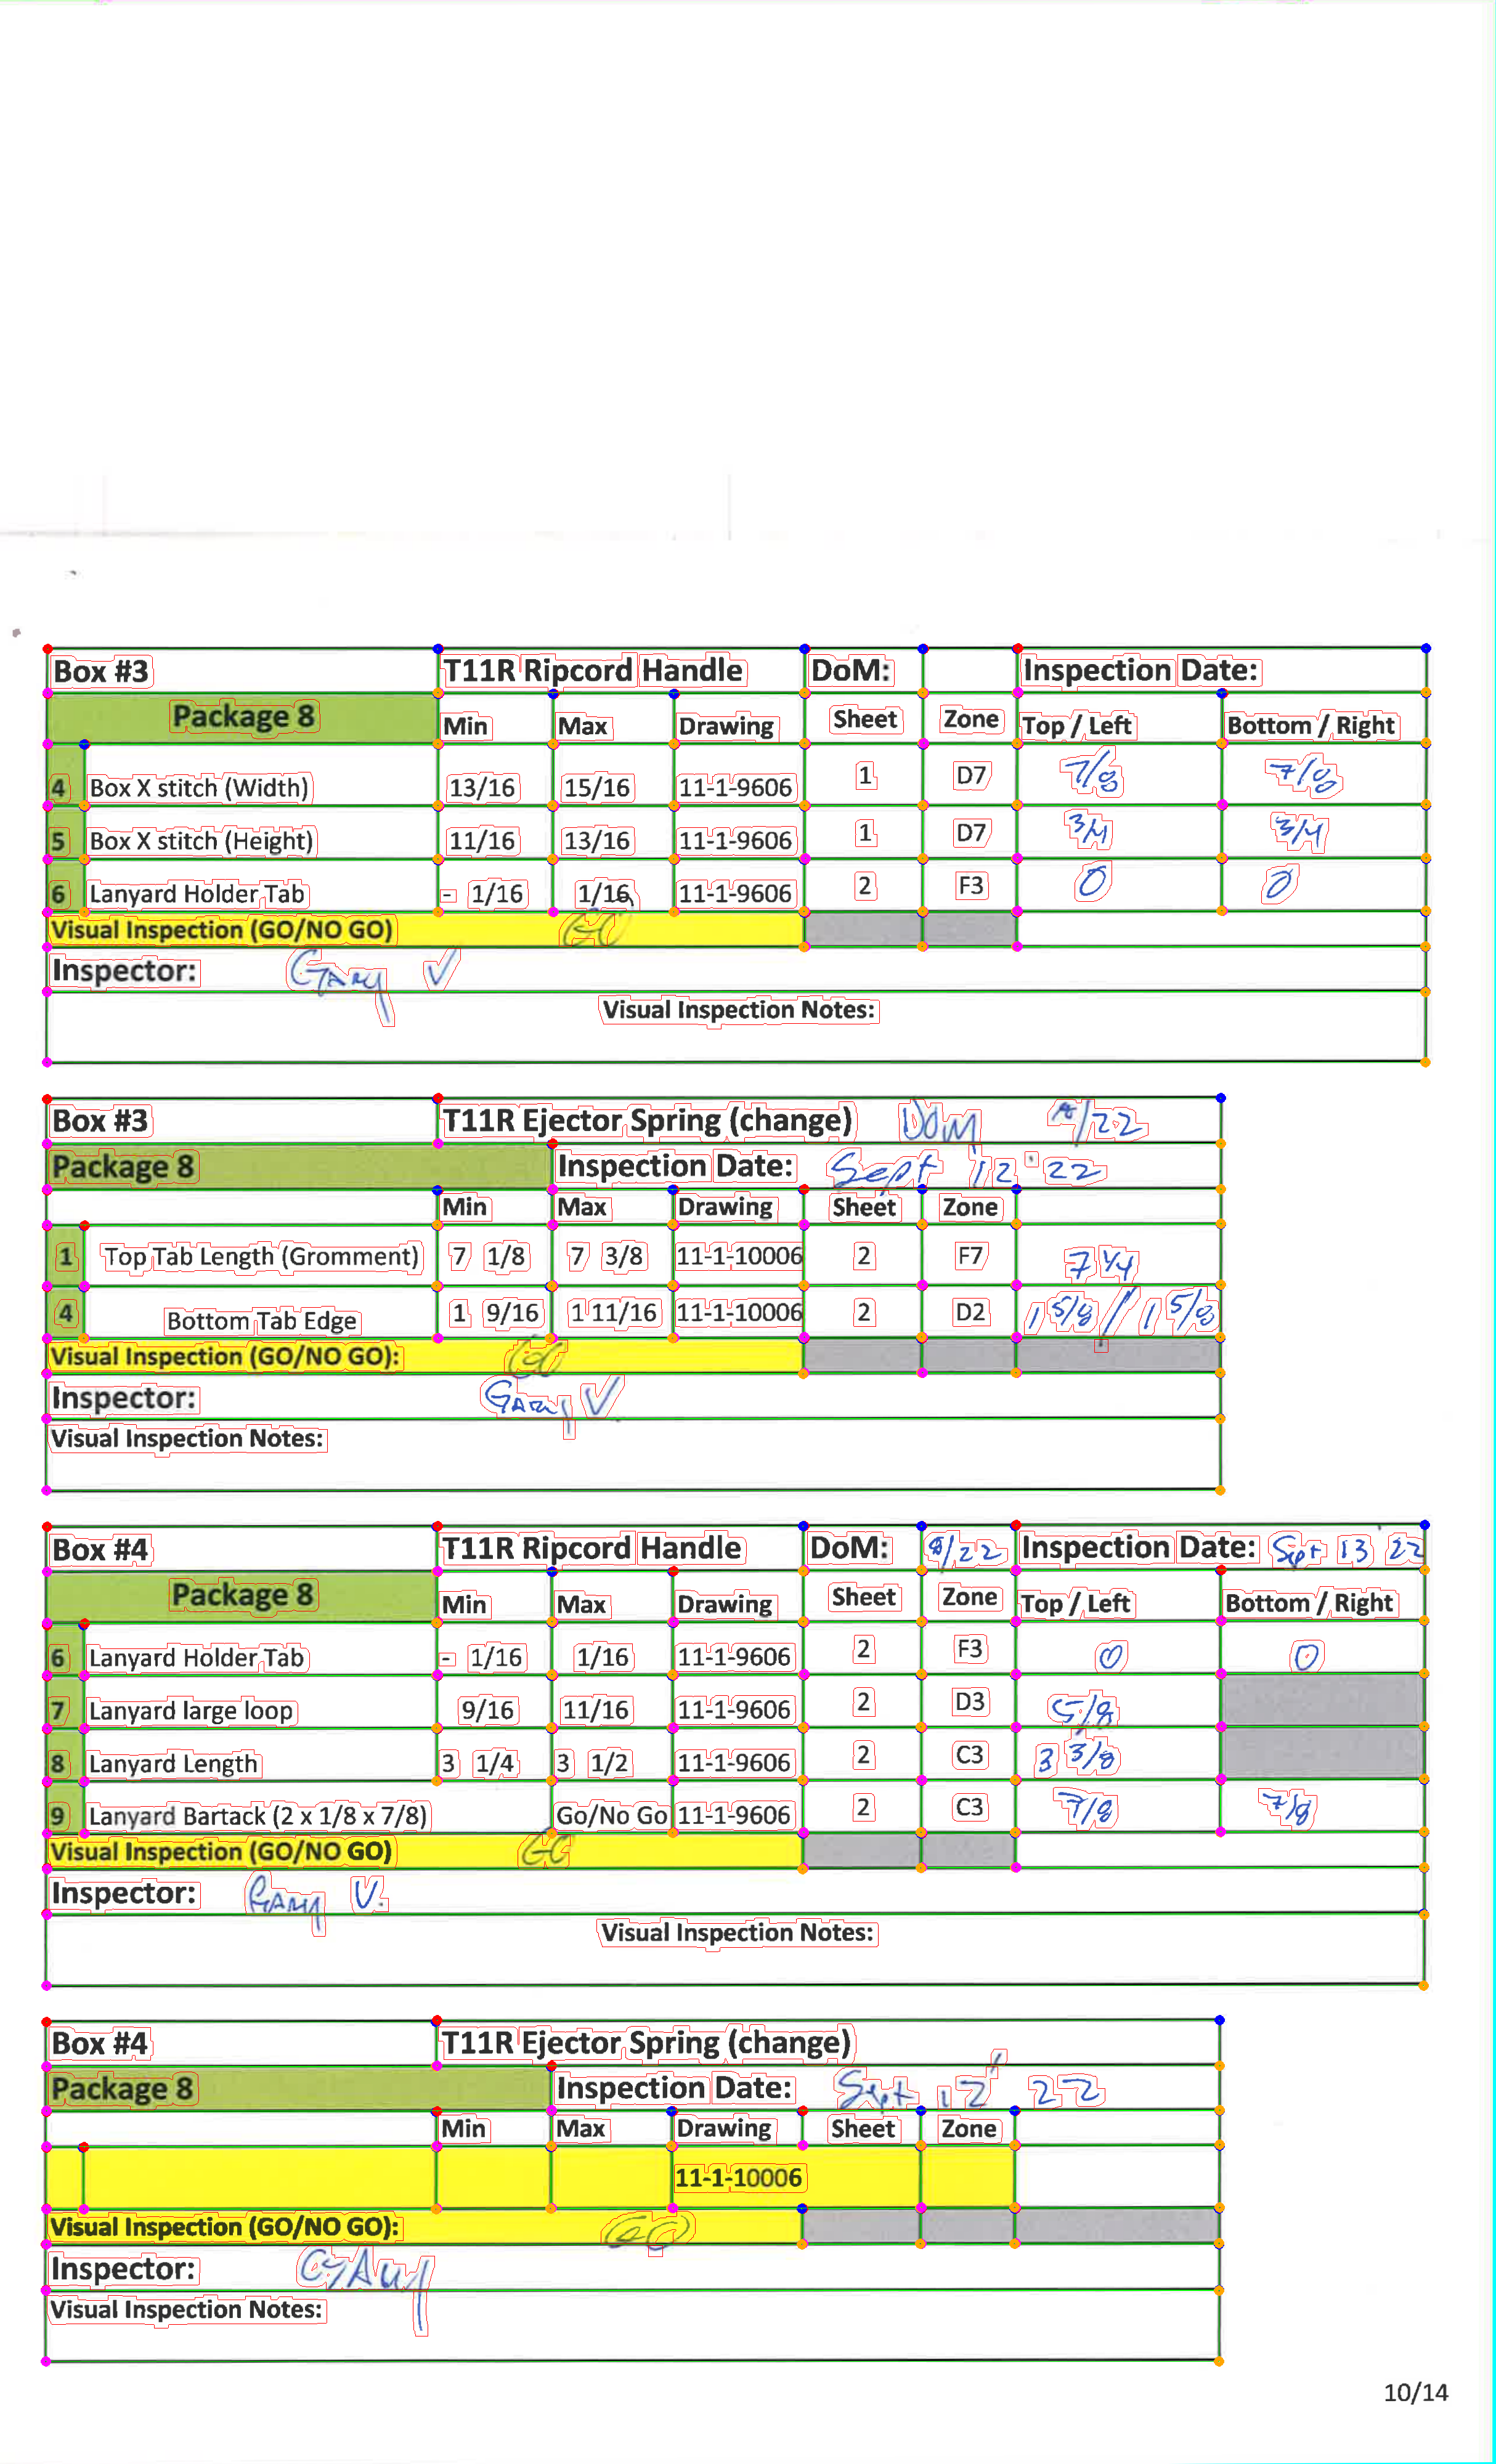 Box #3 T11R Ripcord Handle DoM: Inspection Date:
Package 8 Min Max Drawing Sheet Zone Top / Left Bottom / Right
4 Box X stitch (Width) 13/16 15/16 11-1-9606 1 D7 7/8 7/8
5 Box X stitch (Height) 11/16 13/16 11-1-9606 1 D7 3/4 3/4
6 Lanyard Holder Tab - 1/16 1/16 11-1-9606 2 F3 0 0
Visual Inspection (GO/NO GO) GO
Inspector: Gary V
Visual Inspection Notes:
Box #3 T11R Ejector Spring (change) DOM /22
Package 8 Inspection Date: Sept 12 '22
Min Max Drawing Sheet Zone
1 Top Tab Length (Gromment) 7 1/8 7 3/8 11-1-10006 2 F7 7 1/4
4 Bottom Tab Edge 1 9/16 1 11/16 11-1-10006 2 D2 1 5/8 / 1 5/8
Visual Inspection (GO/NO GO): GO
Inspector: Gary V
Visual Inspection Notes:
Box #4 T11R Ripcord Handle DoM: 8/22 Inspection Date: Sept 13 22
Package 8 Min Max Drawing Sheet Zone Top / Left Bottom / Right
6 Lanyard Holder Tab - 1/16 1/16 11-1-9606 2 F3 0 0
7 Lanyard large loop 9/16 11/16 11-1-9606 2 D3 5/8
8 Lanyard Length 3 1/4 3 1/2 11-1-9606 2 C3 3 3/8
9 Lanyard Bartack (2 x 1/8 x 7/8) Go/No Go 11-1-9606 2 C3 7/8 7/8
Visual Inspection (GO/NO GO) GO
Inspector: Gary V.
Visual Inspection Notes:
Box #4 T11R Ejector Spring (change)
Package 8 Inspection Date: Sept 12' 22
Min Max Drawing Sheet Zone
11-1-10006
Visual Inspection (GO/NO GO): GO
Inspector: Gary
Visual Inspection Notes:
10/14